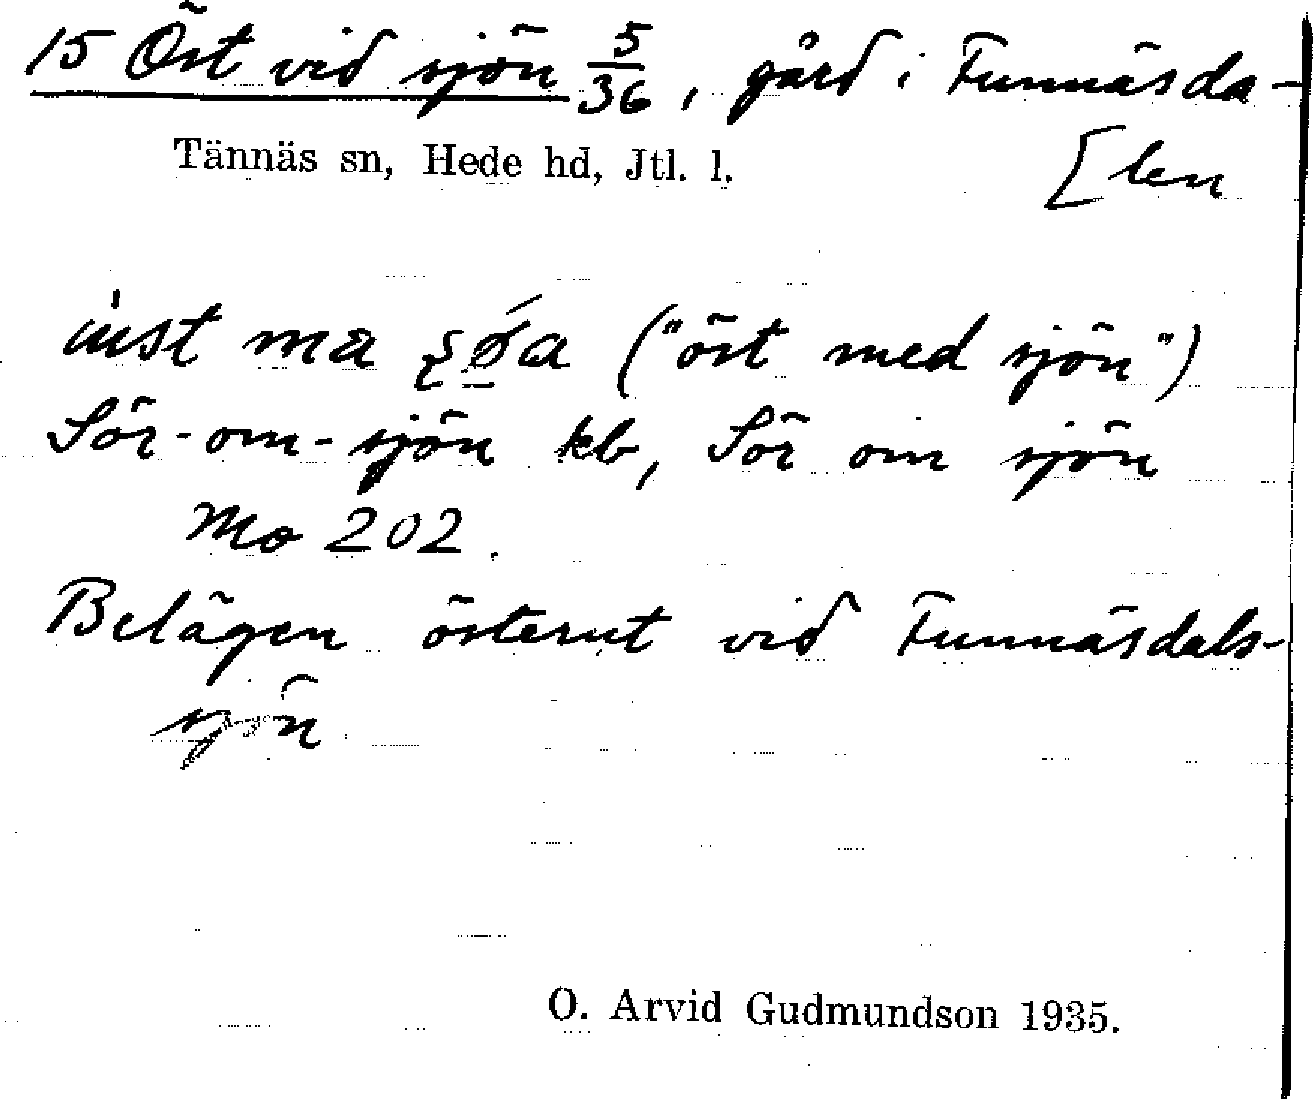 15 Öst vid sjön 5/36, gård i Funnäsda-
[len
Tännäs sn, Hede hd, Jtl. l.
ma ("öst med sjön")
Sör-om-sjön kb, Sör om sjön
Mo 202.
Belägen österut vid Funnäsdals-
sjön.
O. Arvid Gudmundson 1935.